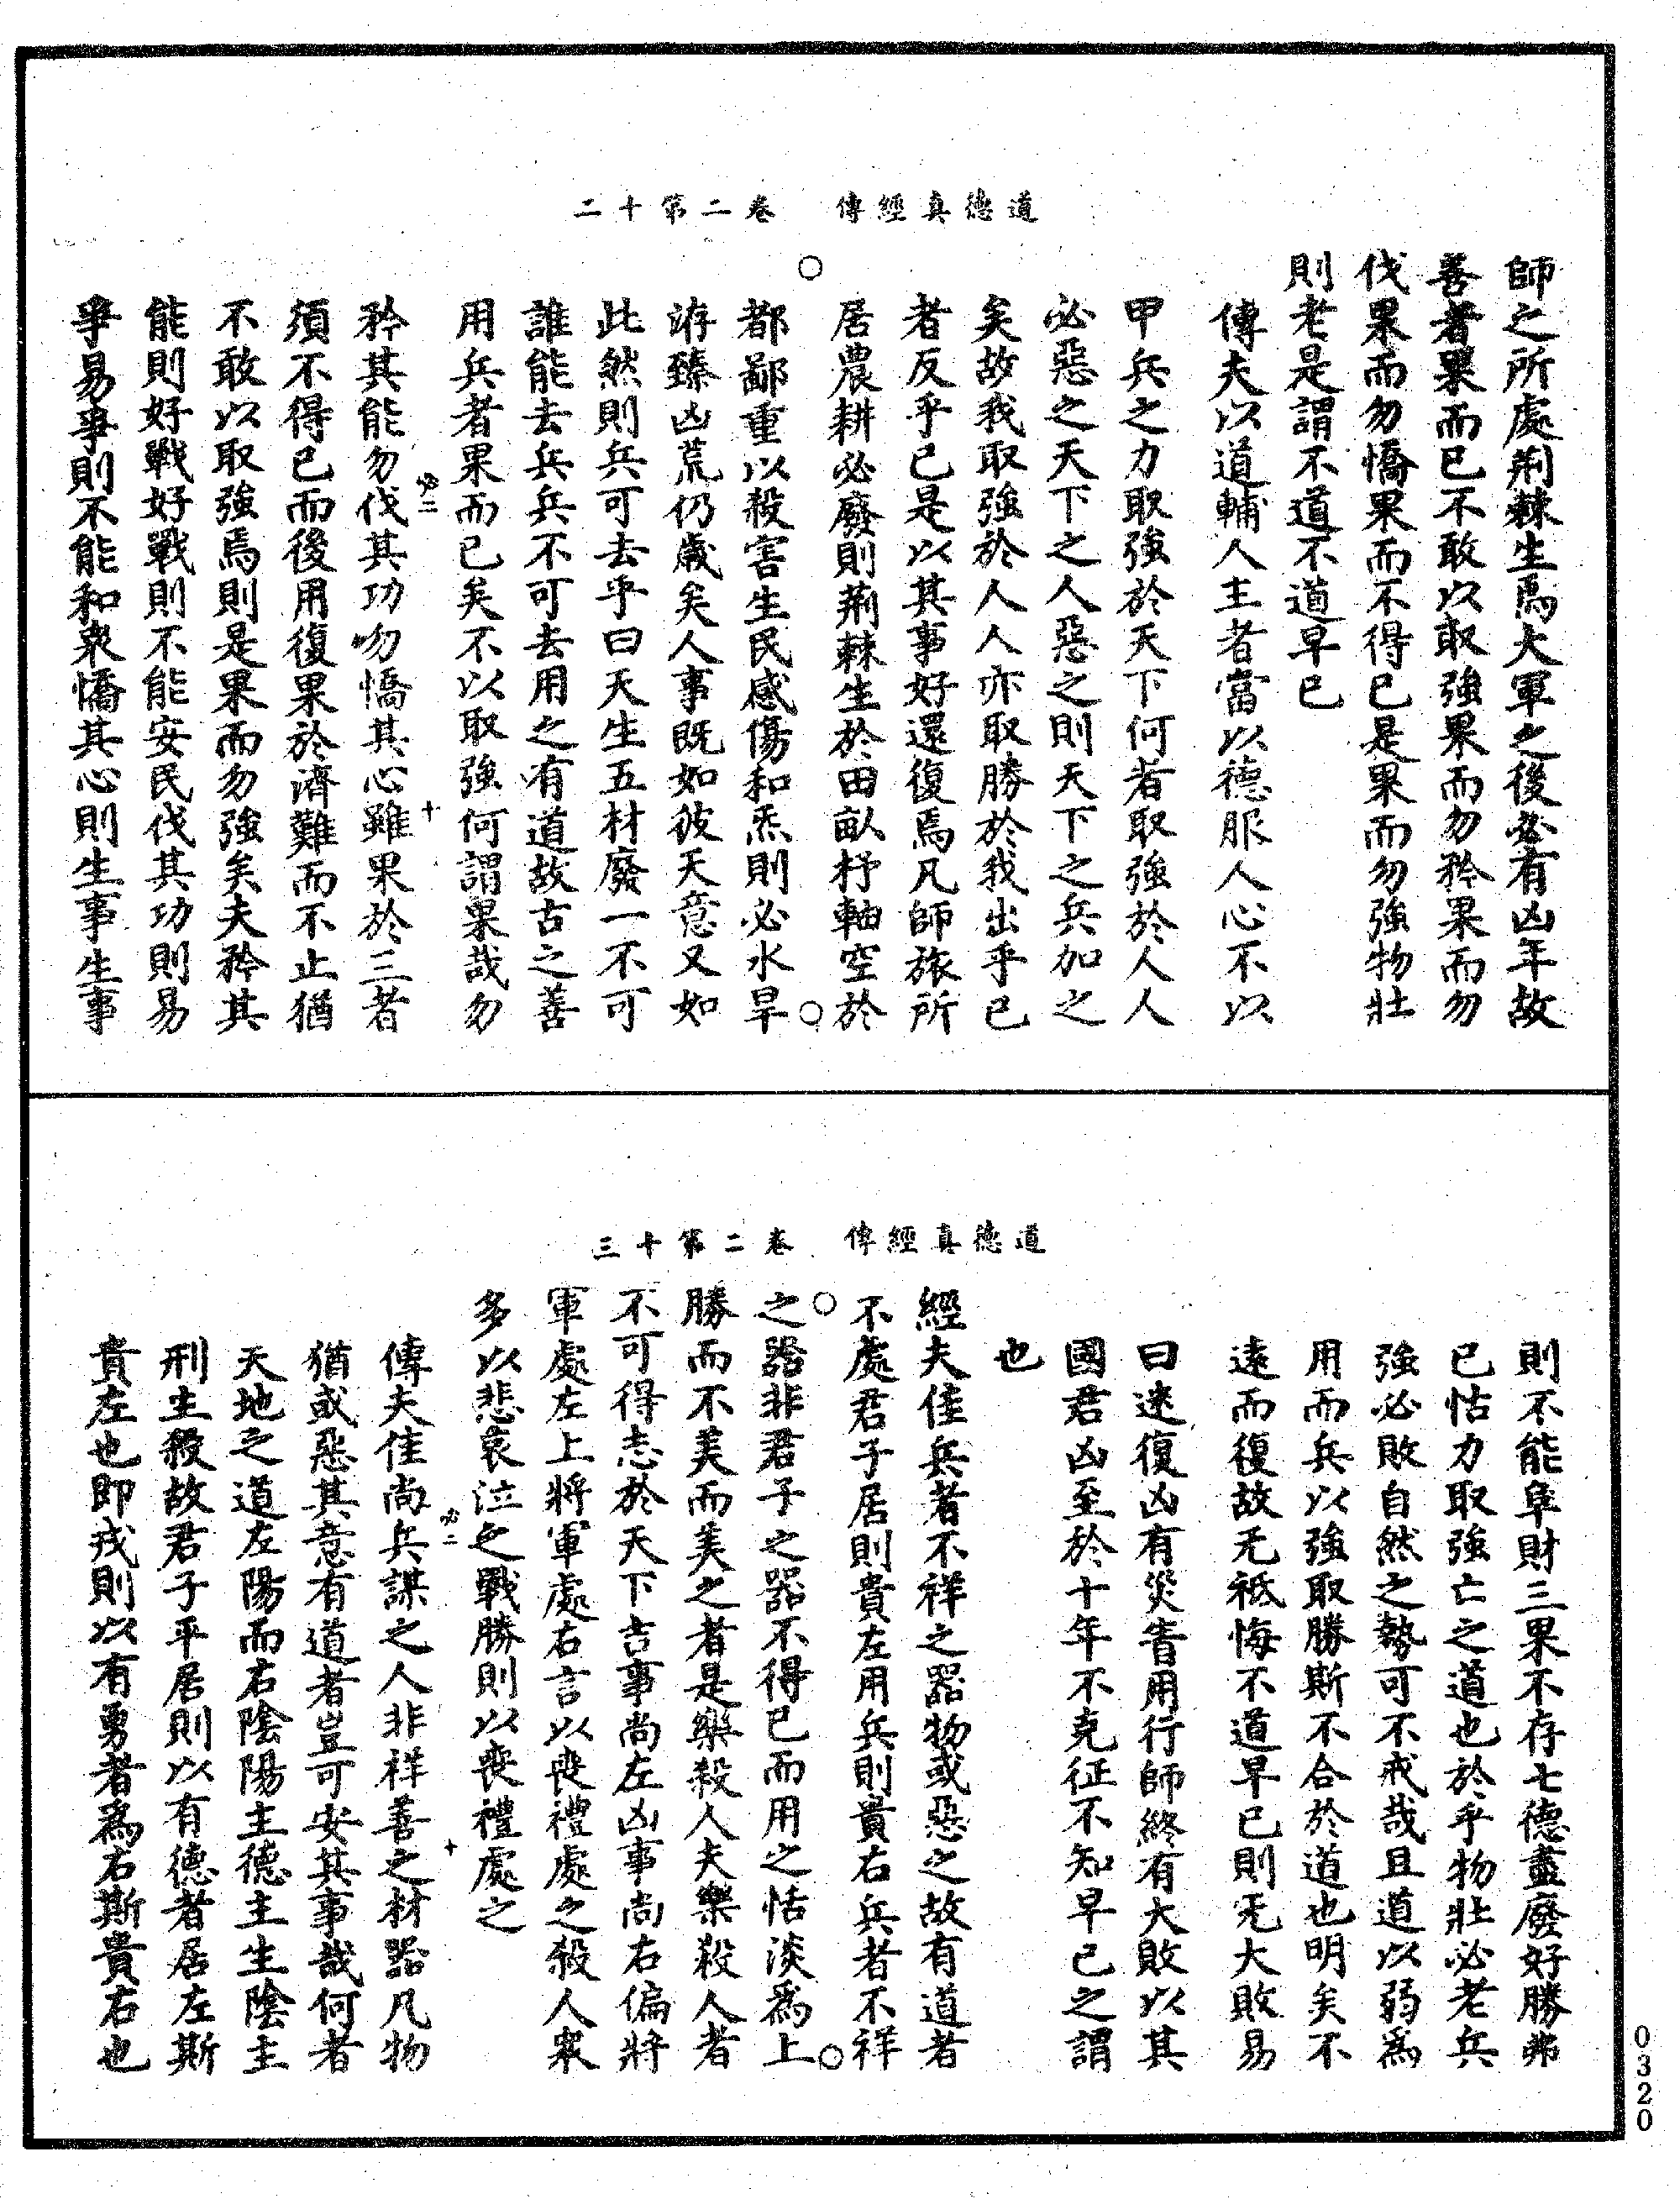 道德真經傳　卷二第十二
師之所處荆棘生焉大軍之後必有凶年故
善者果而已不敢以取強果而勿矜果而勿
伐果而勿憍果而不得已是果而勿強物壯
則老是謂不道不道早已
傳夫以道輔人主者當以德服人心不以
甲兵之力取強於天下何者取強於人人
必惡之天下之人惡之則天下之兵加之
矣故我取強於人人亦取勝於我出乎已
者反乎已是以其事好還復焉凡師旅所
居農耕必廢則荆棘生於田畝杼軸空於
都鄙重以殺害生民感傷和炁則必水旱
洊臻凶荒仍歲矣人事既如彼天意又如
此然則兵可去乎曰天生五材廢一不可
誰能去兵兵不可去用之有道故古之善
用兵者果而已矣不以取強何謂果哉勿
必二　十
矜其能勿伐其功勿憍其心雖果於三者
須不得已而後用復果於濟難而不止猶
不敢以取強焉則是果而勿強矣夫矜其
能則好戰好戰則不能安民伐其功則易
爭易爭則不能和衆憍其心則生事生事
道德真經傳　卷二第十三
則不能阜財三果不存七德盡廢好勝弗
已怙力取強亡之道也於乎物壯必老兵
強必敗自然之勢可不戒哉且道以弱爲
用而兵以強取勝斯不合於道也明矣不
遠而復故无祗悔不道早已則无大敗易
曰迷復凶有災眚用行師終有大敗以其
國君凶至於十年不克征不知早已之謂
也
經夫佳兵者不祥之器物或惡之故有道者
不處君子居則貴左用兵則貴右兵者不祥
之器非君子之器不得已而用之恬淡爲上
勝而不美而美之者是樂殺人夫樂殺人者
不可得志於天下吉事尚左凶事尚右偏將
軍處左上將軍處右言以喪禮處之殺人衆
多以悲哀泣之戰勝則以喪禮處之
必二　十
傳夫佳尚兵謀之人非祥善之材器凡物
猶或惡其意有道者豈可安其事哉何者
天地之道左陽而右陰陽主德主生陰主
刑主殺故君子平居則以有德者居左斯
貴左也即戎則以有勇者爲右斯貴右也
0320